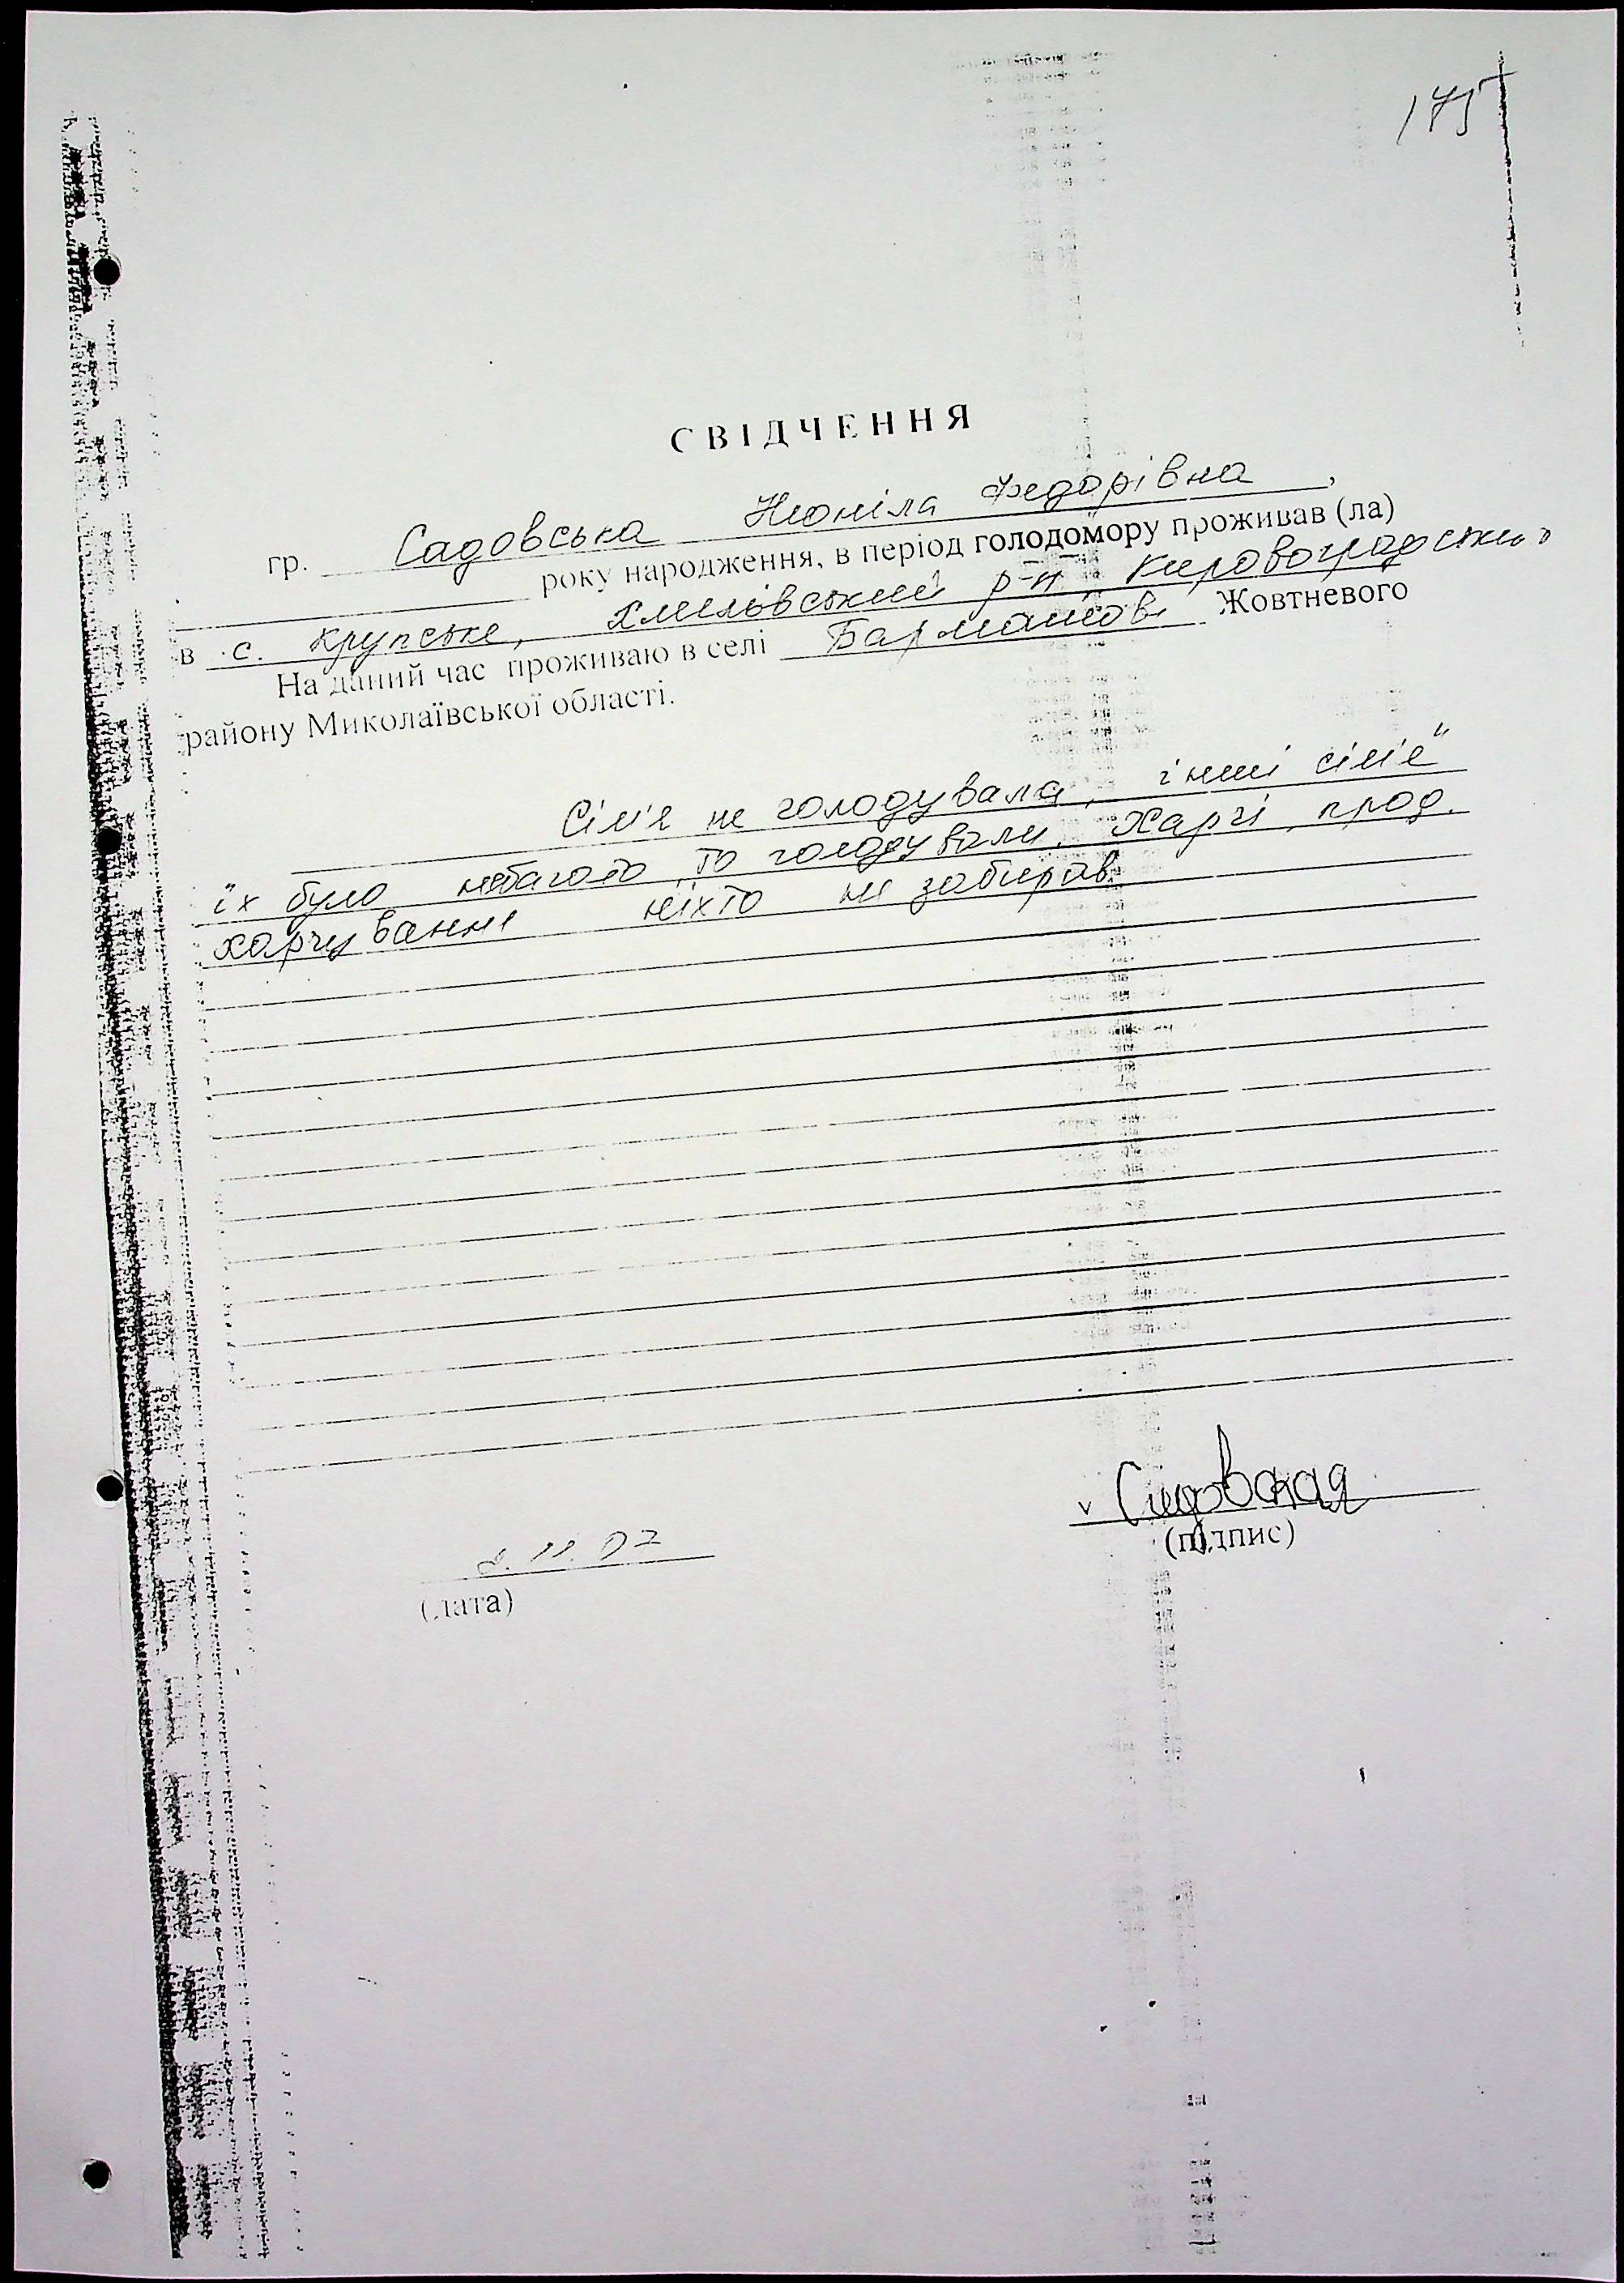 175
СВІДЧЕННЯ
гр. Садовська Неоніла Федорівна,
року народження, в період голодомору проживав (ла)
в с. Крупське, р-н Кіровоградський
На даний час проживаю в селі Жовтневого
району Миколаївської області.
Сім'я не голодувала, інші сім'ї
їх було небагато то голодували. Харчі, прод.
харчування ніхто не забирав.
Садовская
(підпис)
2.11.07
(дата)